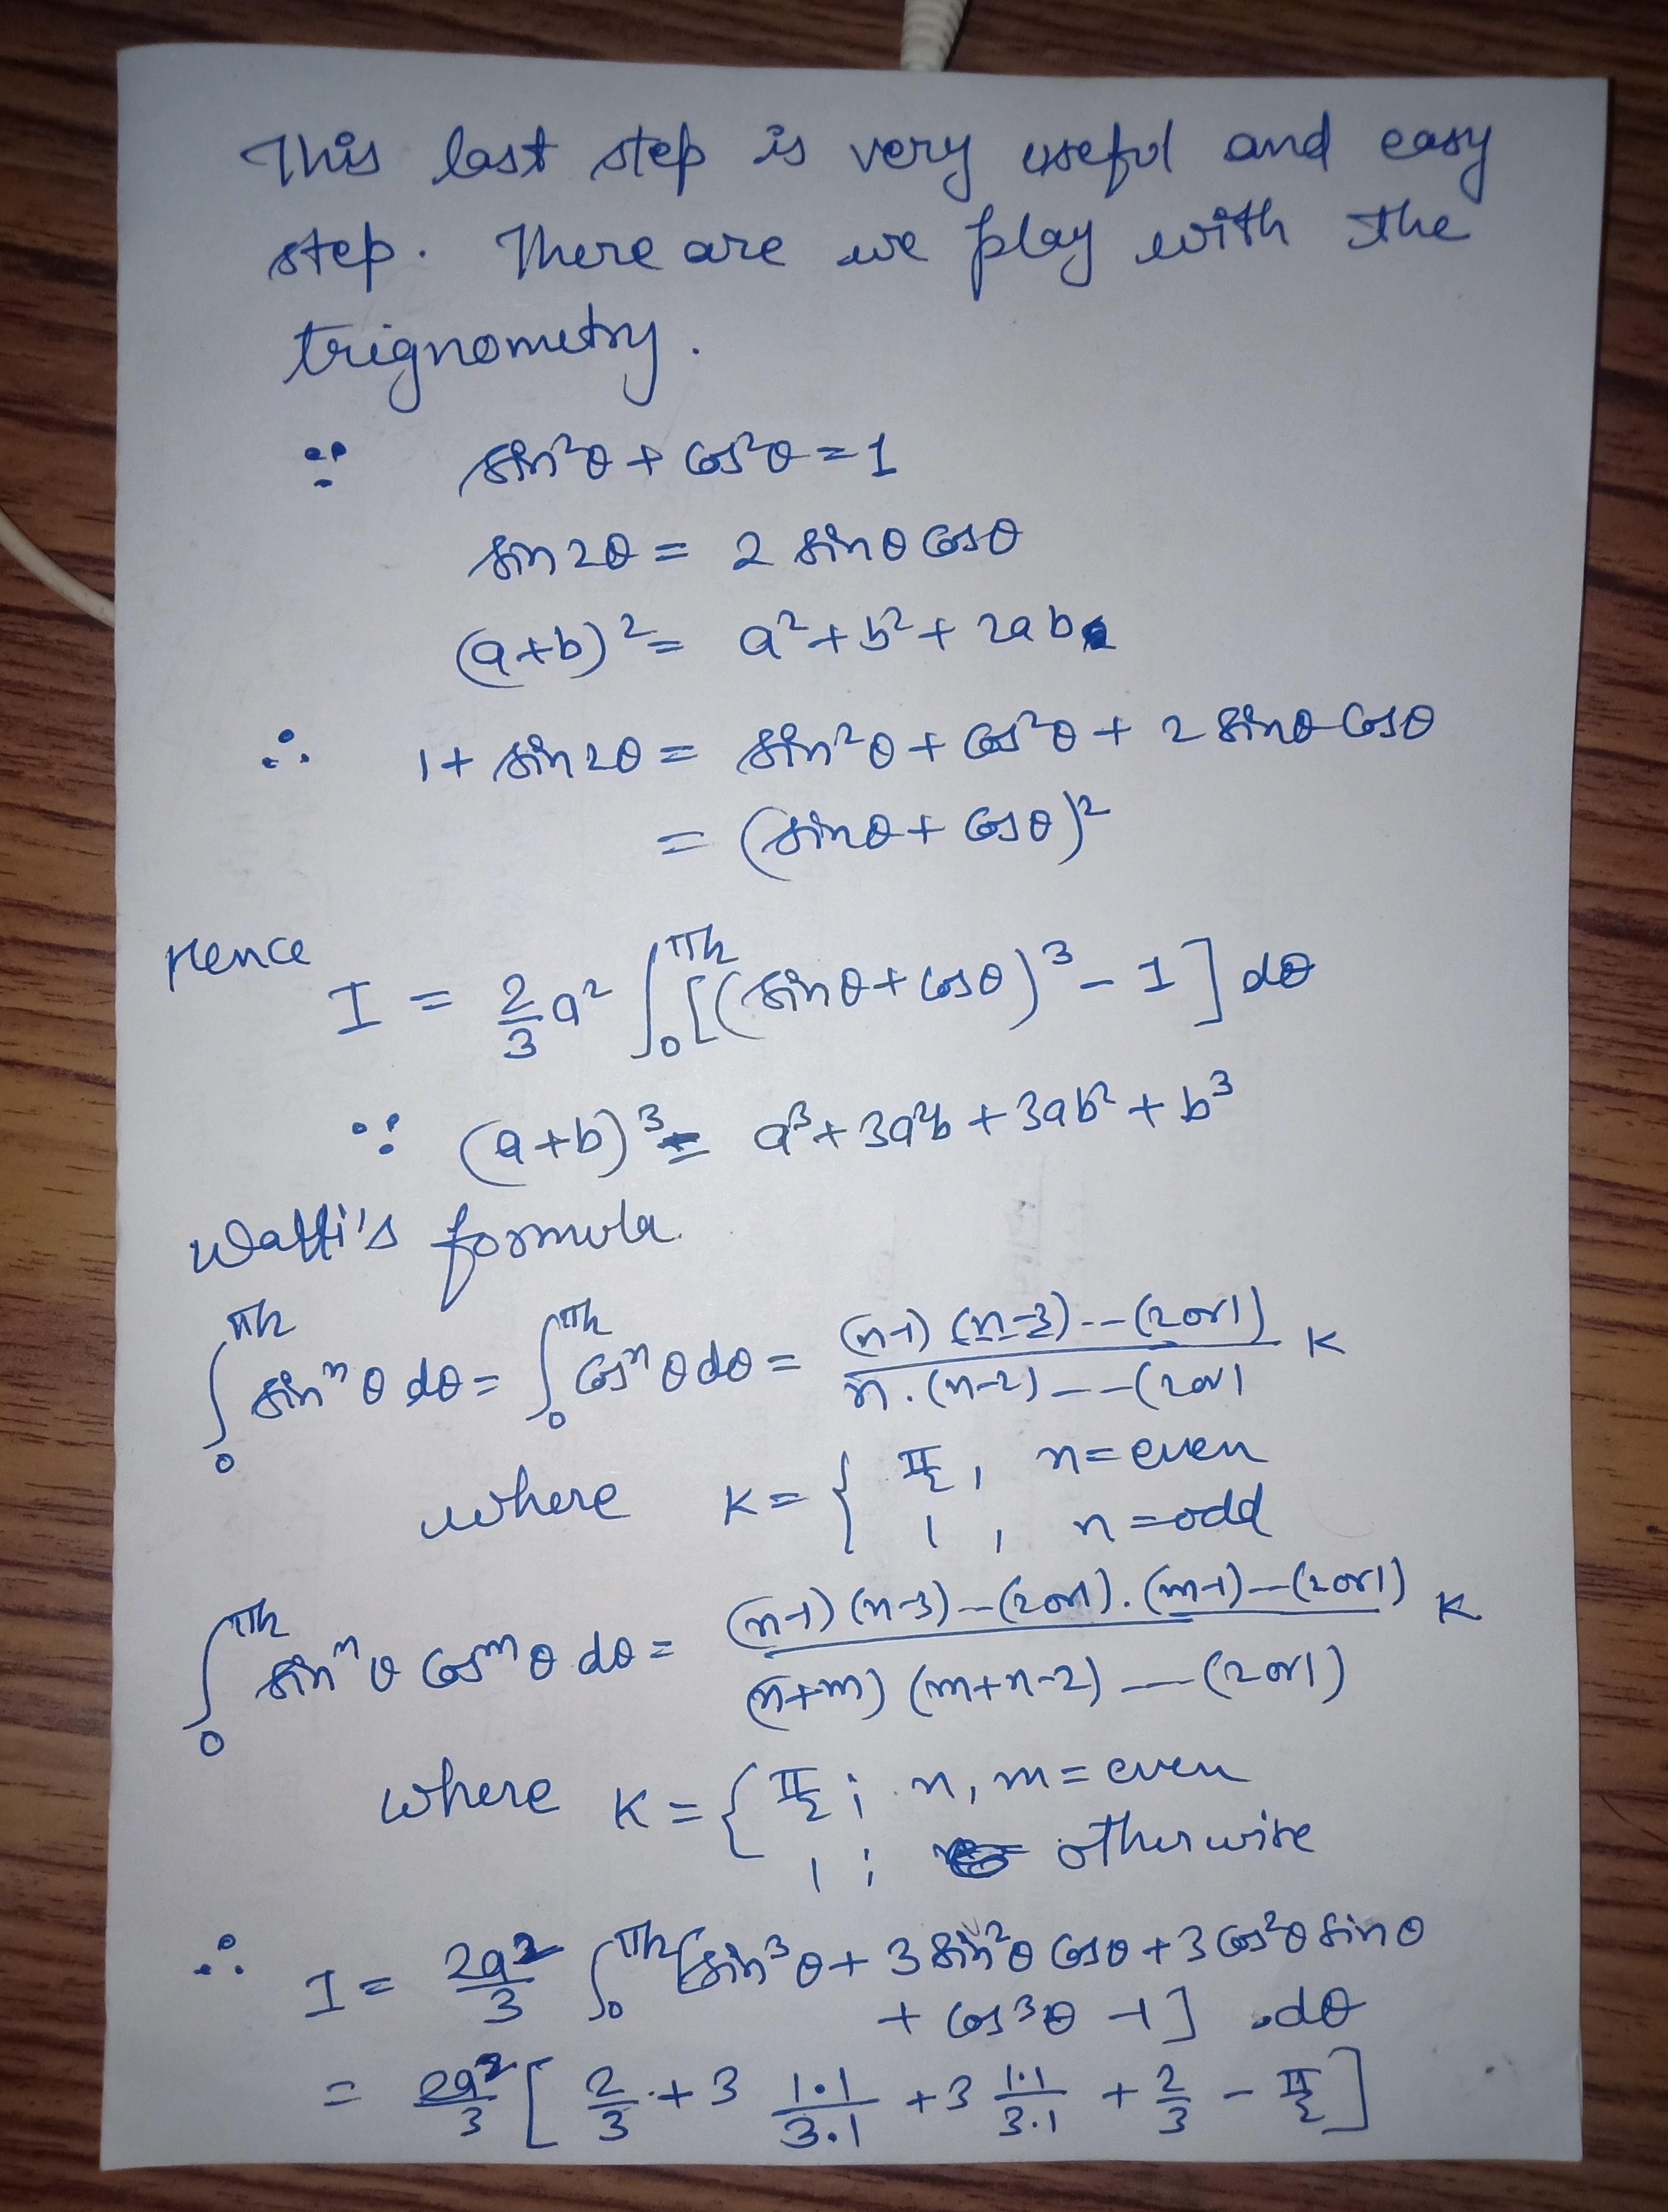 This last step is very useful and easy
step. There are we play with the
trignometry.
∵ sin²θ + cos²θ = 1
sin 2θ = 2 sinθ cosθ
(a+b)² = a² + b² + 2ab
∴ 1 + sin 2θ = sin²θ + cos²θ + 2 sinθ cosθ
= (sinθ + cosθ)²
Hence
I = 2/3 a² ∫₀^π/2 [(sinθ + cosθ)³ - 1] dθ
∵ (a+b)³ = a³ + 3a²b + 3ab² + b³
Walli's formula
∫₀^π/2 sinⁿθ dθ = ∫₀^π/2 cosⁿθ dθ = (n-1) (n-3) -- (2 or 1) / n.(n-2) --- (2 or 1 K
where K = { π/2, n = even
1, n = odd
∫₀^π/2 sinⁿθ cosᵐθ dθ = (n-1) (n-3) -- (2 or 1). (m-1) -- (2 or 1) / (n+m) (m+n-2) --- (2 or 1) K
where K = { π/2 ; n, m = even
1 ; otherwise
∴ I = 2a²/3 ∫₀^π/2 [sin³θ + 3 sin²θ cosθ + 3 cos²θ sinθ
+ cos³θ - 1] .dθ
= 2a²/3 [ 2/3 + 3 1.1/3.1 + 3 1.1/3.1 + 2/3 - π/2 ]